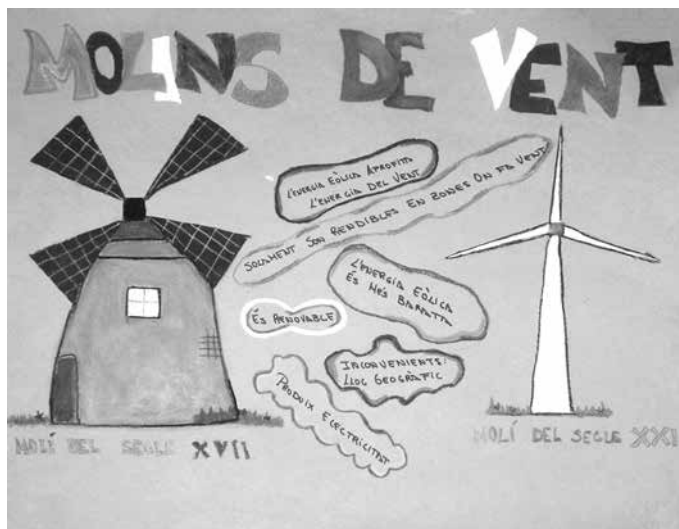 MOLINS DE VENT
L'ENERGIA EÒLICA APROFITA
L'ENERGIA DEL VENT
SOLAMENT SON RENDIBLES EN ZONES ON FA VENT
L'ENERGIA EÒLICA
ÉS MÉS BARATTA
ÉS RENOVABLE
INCONVENIENTS:
LLOC GEOGRÀFIC
PRODUIX ELECTRICITAT
MOLÍ DEL SEGLE XVII
MOLÍ DEL SEGLE XXI